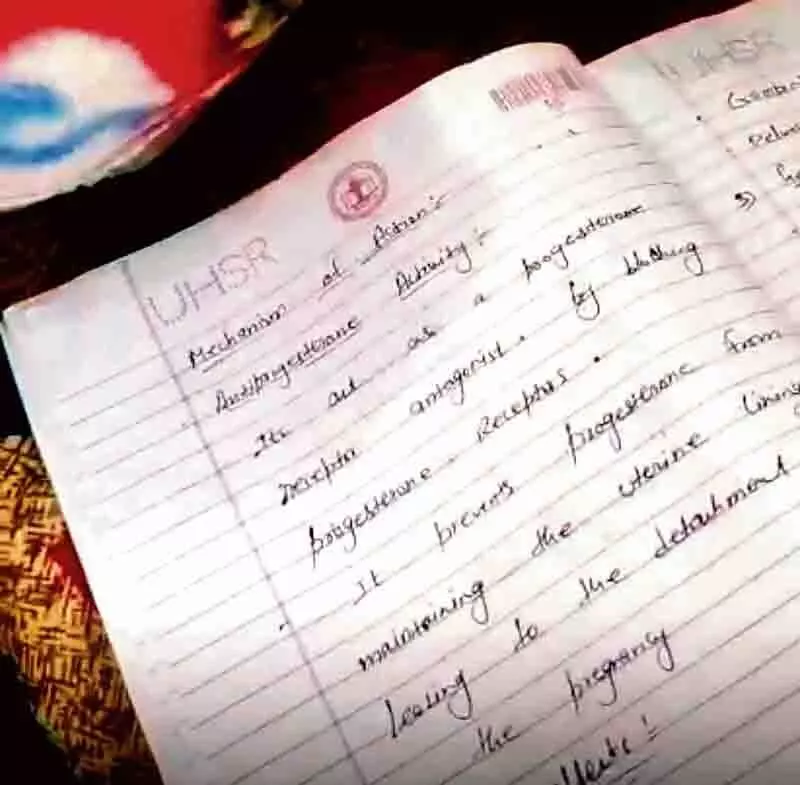 UHSR
Mechanism of Action :-
Antiprogesterone Activity :-
Its act as a progesterone
receptor antagonist. by blocking
progesterone Receptors.
It prevents progesterone from
maintaining the uterine lining
leading to the detachment
the pregnancy
UHSR
5)